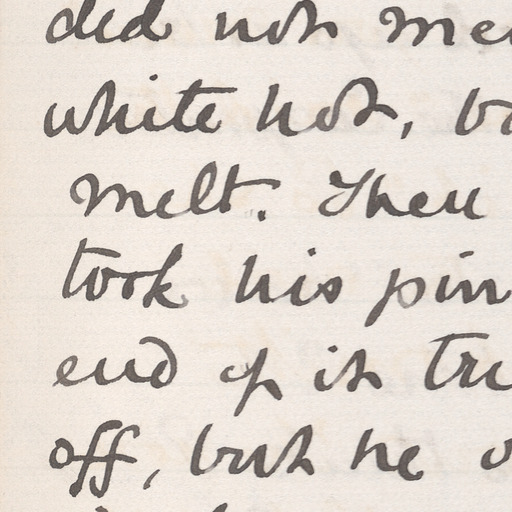 did not me
white hot, b
melt. Then
took his pin
end of it tr
off, but he